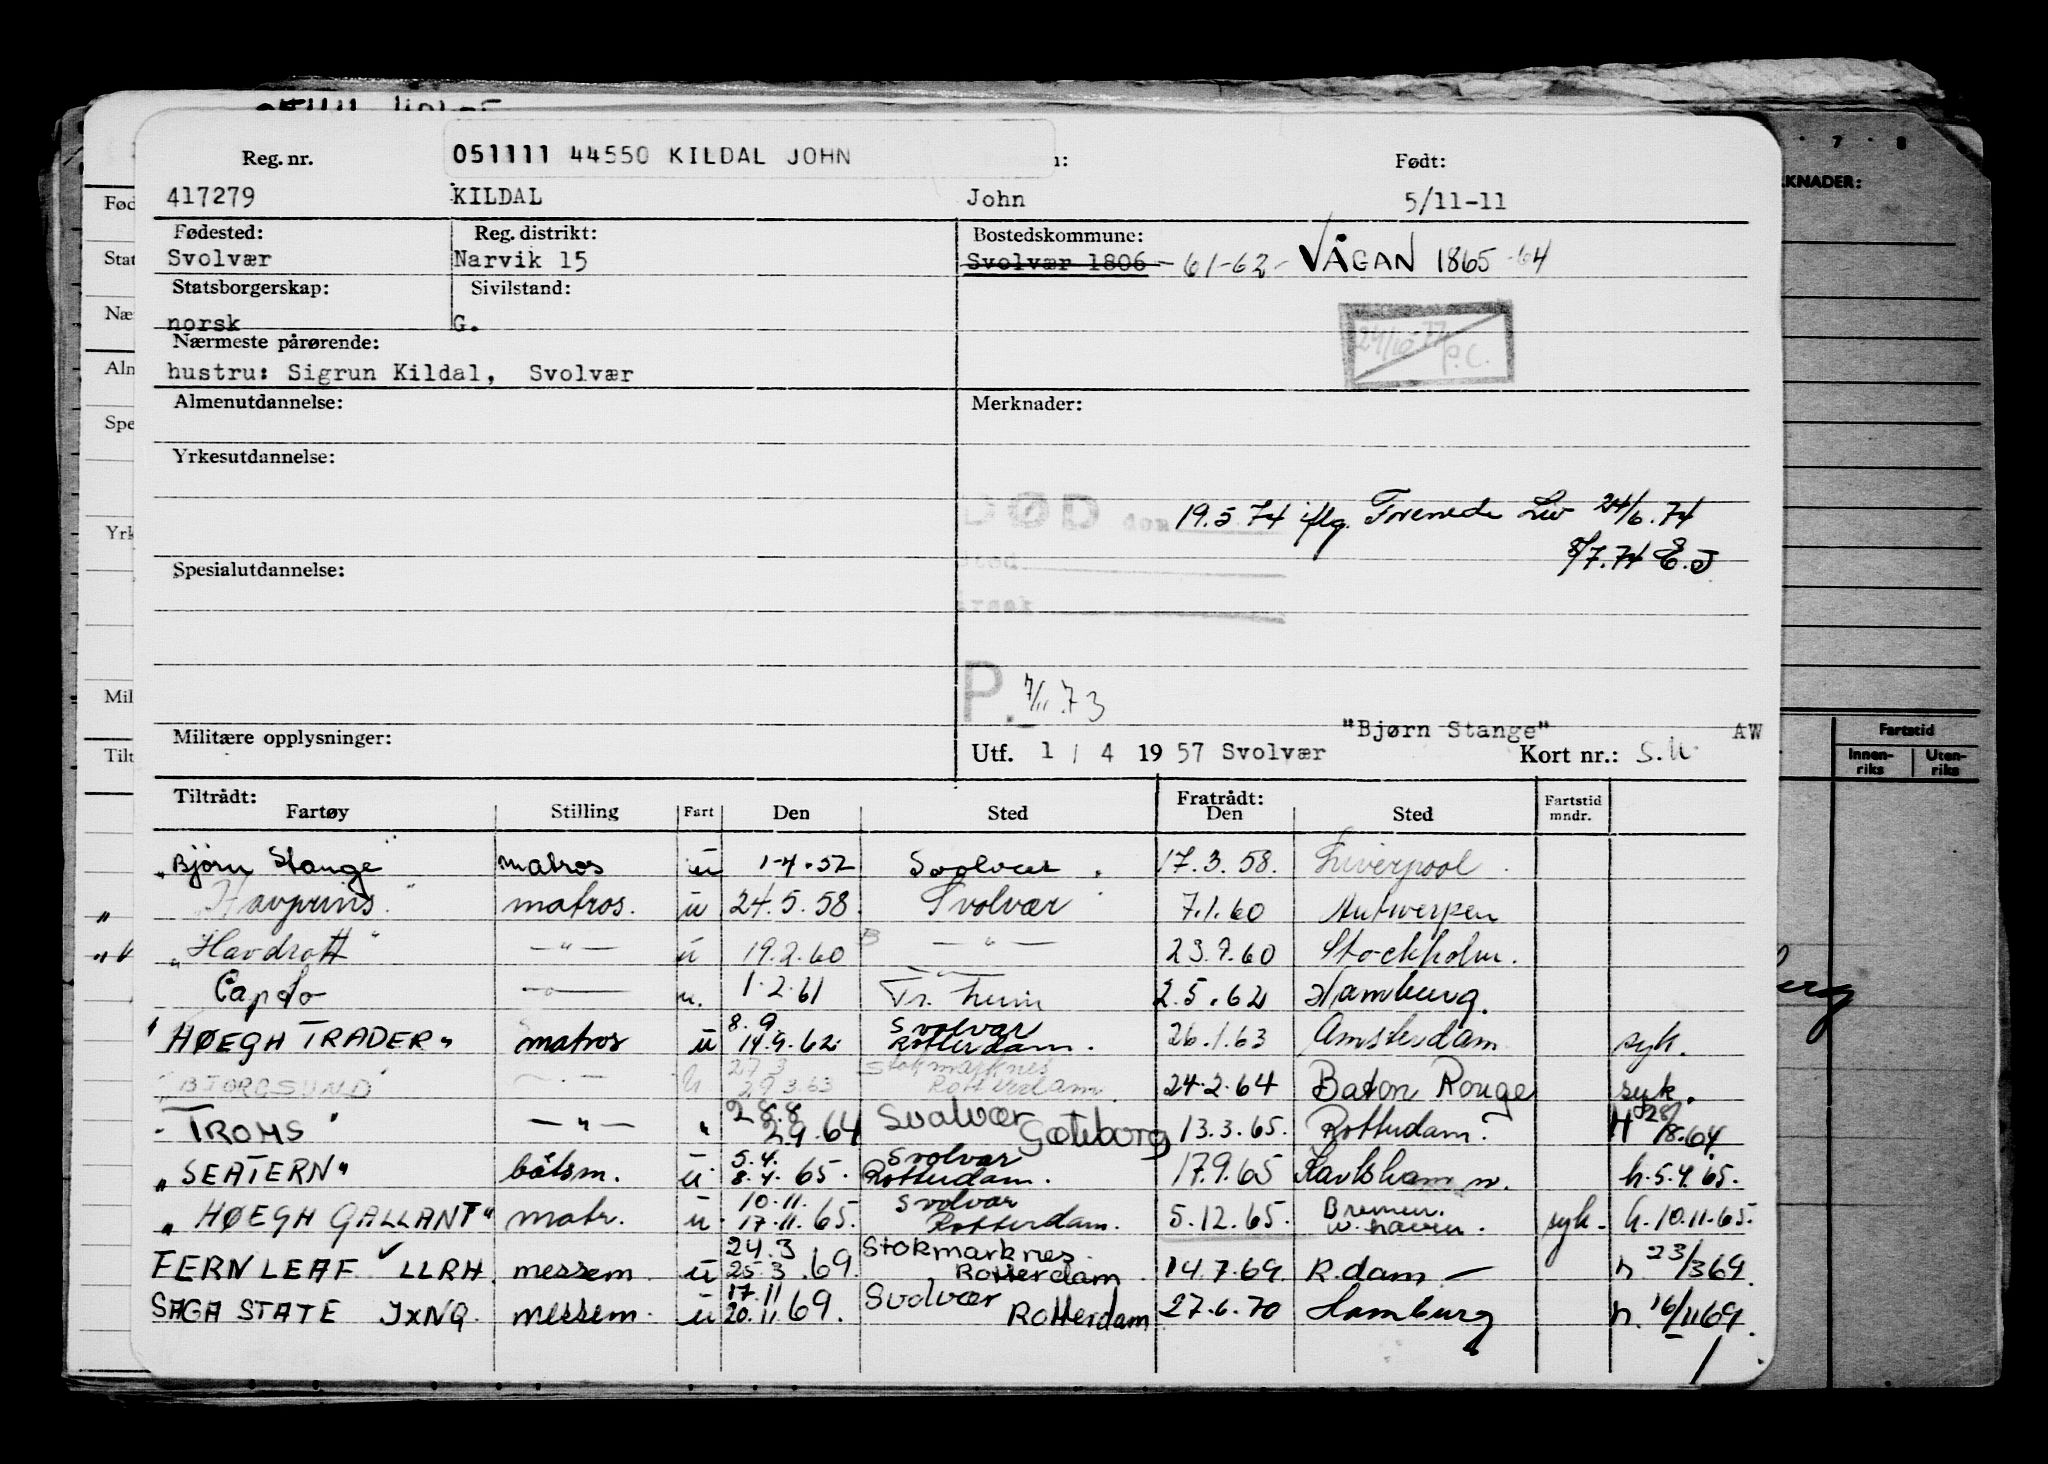 Reg. nr. 051111 44550 KILDAL JOHN Født:
417279 KILDAL John 5/11-11
Fødested: Reg. distrikt: Bostedskommune:
Svolvær Narvik 15 Svolvær 1806 - 61-62 - VÅGAN 1865 -64
Statsborgerskap: Sivilstand:
norsk G.
24/10-77 P.C.
Nærmeste pårørende:
hustru: Sigrun Kildal, Svolvær
Almenutdannelse: Merknader:
Yrkesutdannelse:
DØD den 19.5.74 iflg. Forenede Liv 24/6.74
8/7.74 E.J
Spesialutdannelse:
P. 7/11.73
"Bjørn Stange" AW
Militære opplysninger: Utf. 1 / 4 1957 Svolvær Kort nr.: S.U
Tiltrådt: Fratrådt: Fartstid
Fartøy Stilling Fart Den Sted Den Sted mndr.
"Bjørn Stange" matros u 1-4.57 Svolvær. 17.3.58. Liverpool.
"Havprins" matros. u 24.5.58. Svolvær 7.1.60 Antwerpen
"Havdrott" —"— u 19.2.60 —"— 23.9.60 Stockholm.
Capto —"— u. 1.2.61 Tr.heim 2.5.62 Hamburg.
8.9. Svolvær
"HØEGH TRADER" matros u 14.9.62 Rotterdam. 26.1.63 Amsterdam syk.
27.3 Stokmarknes
"BJORGSUND" —"— u. 29.3.63 Rotterdam 24.2.64 Baton Rouge syk.
28.8 Svolvær 28/
"TROMS" —"— " 2.9.64 Gøteborg 13.3.65. Rotterdam. H 8.64.
5.4. Svolvær
"SEATERN" båtsm. u. 8.4.65. Rotterdam. 17.9.65 Karlshamn. h.5.4.65.
10.11. Svolvær Bremer
"HØEGH GALLANT" matr. u. 17.11.65. Rotterdam. 5.12.65. w.haven. syk. h.10.11.65.
24.3 Stokmarknes.
FERNLEAF LLRH. messem. u 25.3.69. Rotterdam 14.7.69. R.dam — h. 23/3 69.
17.11 Svolvær
SAGA STATE JXNQ. messem. u 20.11 69. Rotterdam 27.6.70 Hamburg h. 16/11 69.
KNADER:
Fartstid
Innen-
riks Uten-
riks
Fød
Stat
Nær
Alm
Spe
Yrk
Mil
Tilt